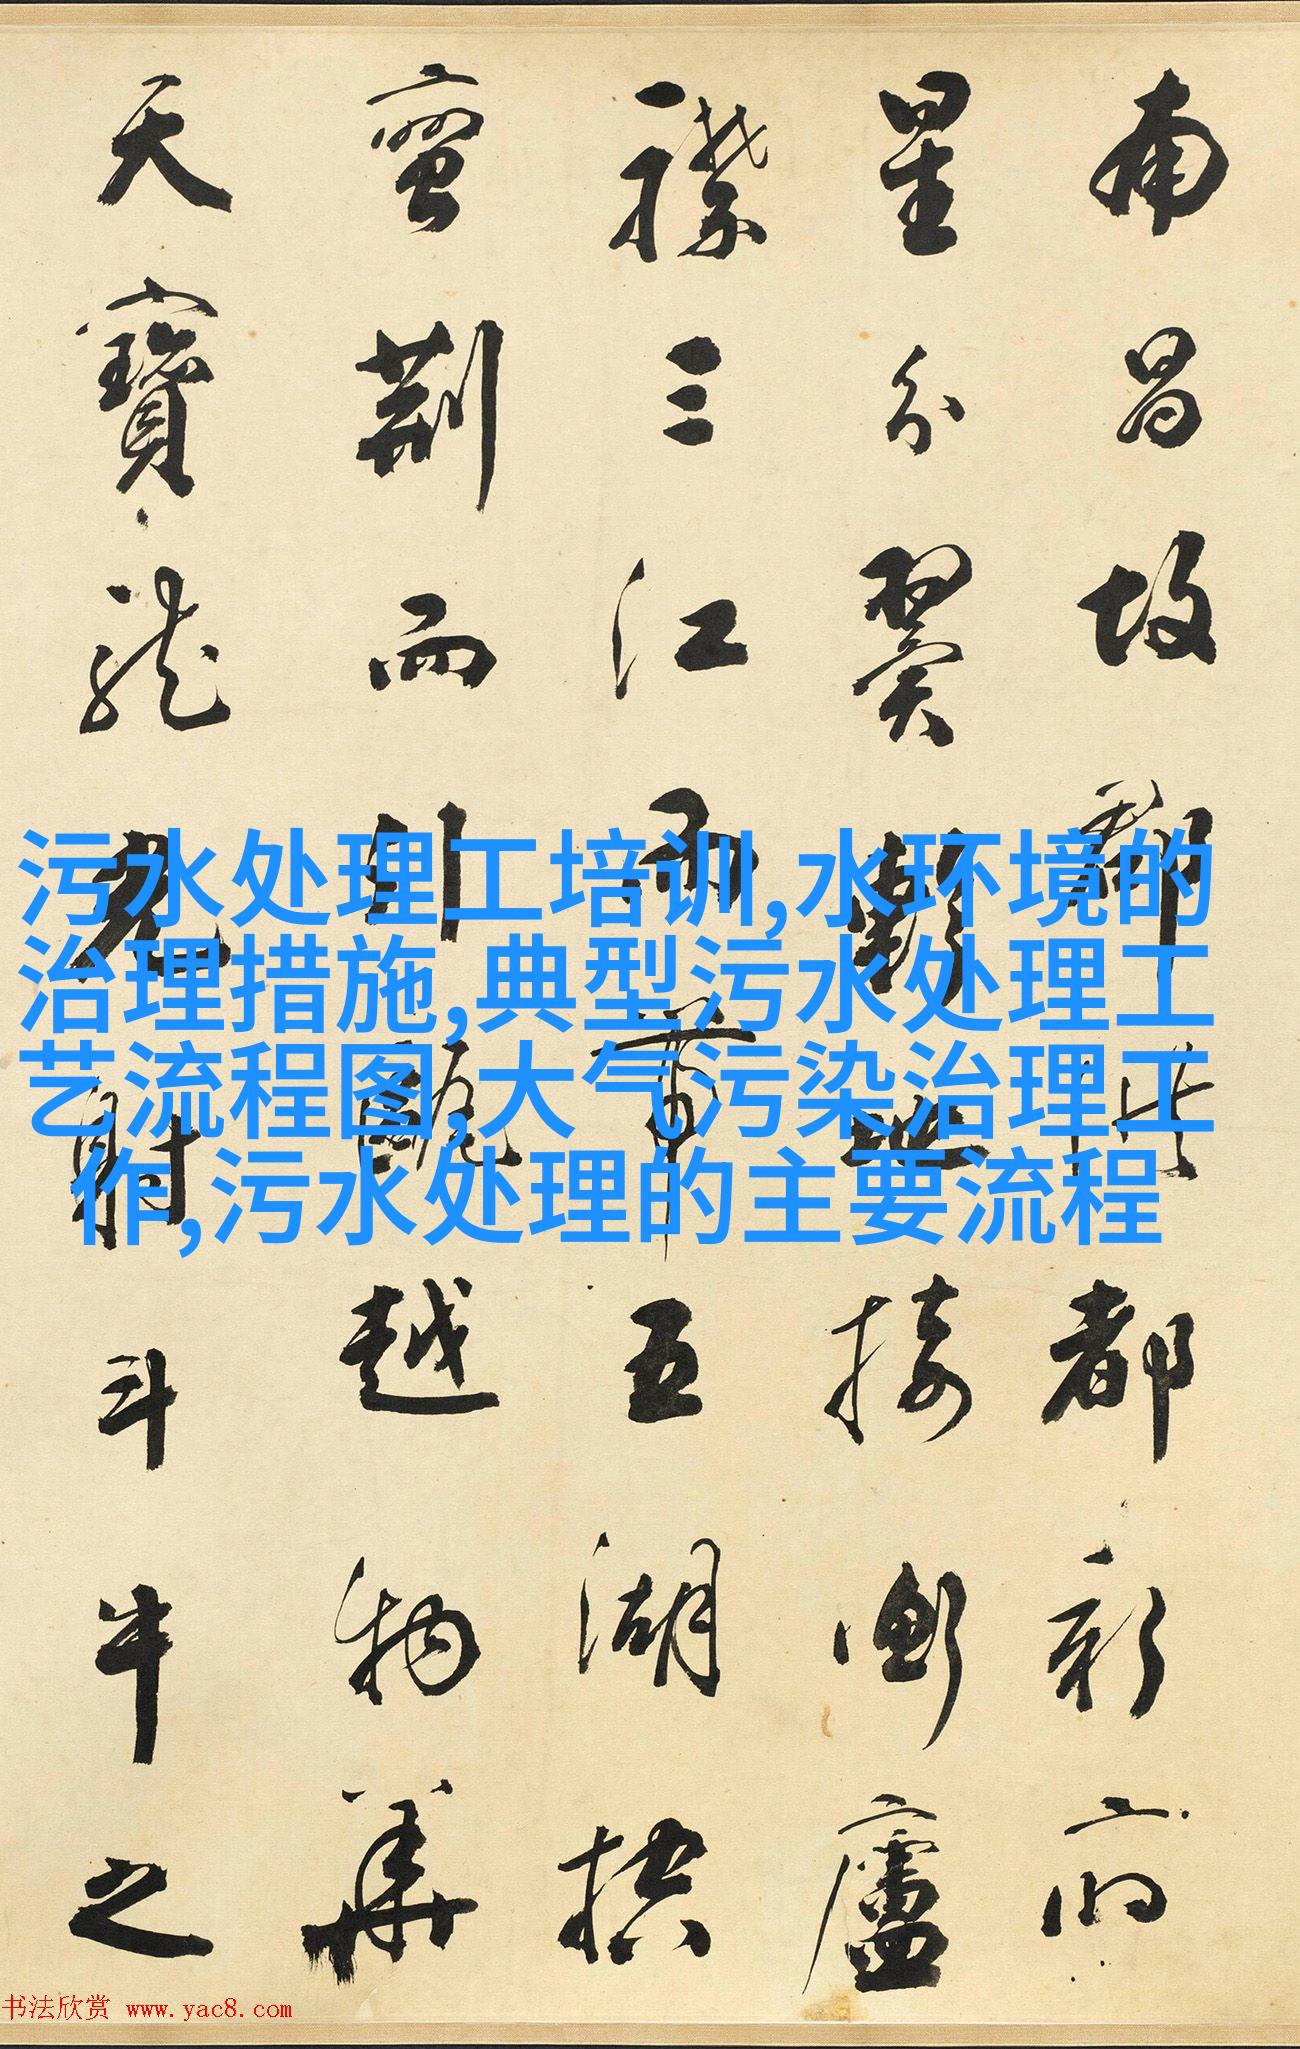 南昌故郡洪都新府
星分翼軫地接衡廬
襟三江而帶五湖控
蠻荊而引甌越物華
天寶龍光射斗牛之
污水处理工培训,水环境的
治理措施,典型污水处理工
艺流程图,大气污染治理工
作,污水处理的主要流程
书法欣赏 www.yac8.com